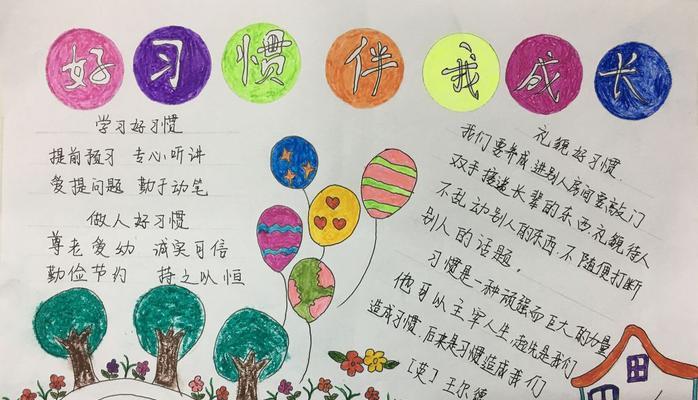 好习惯伴我成长
学习好习惯
提前预习 专心听讲
爱提问题 勤于动笔
做人好习惯
尊老爱幼 诚实可信
勤俭节约 持之以恒
礼貌好习惯.
我们要养成进别人房间要敲门
双手接递长辈的东西,礼貌待人
不乱动别人的东西,不随便打断
别人的话题。
习惯是一种顽强而巨大的力量
他可以主宰人生,起先是我们
造成习惯,后来是习惯造成我们
[英]王尔德